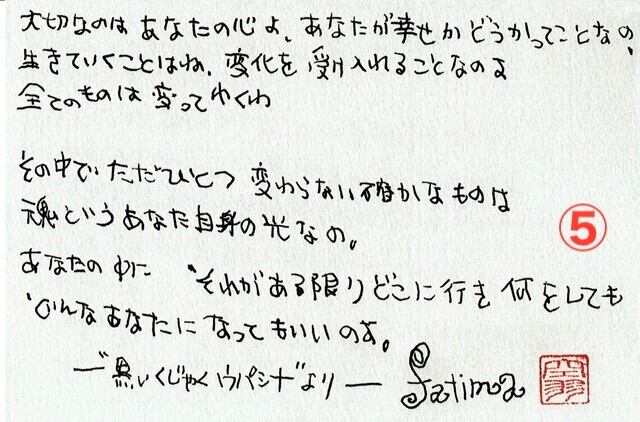 大切なのは あなたの心よ、あなたが幸せかどうかってことなの、
生きていくことはね、変化を受け入れることなのよ
全てのものは変ってゆくわ
その中で、ただひとつ 変わらない確かなものは
魂というあなた自身の光なの。
⑤
あなたの中に、それがある限りどこに行き何をしても
どんなあなたになってもいいのよ。
―"黒いくじゃくウパシナ"より― Fatima